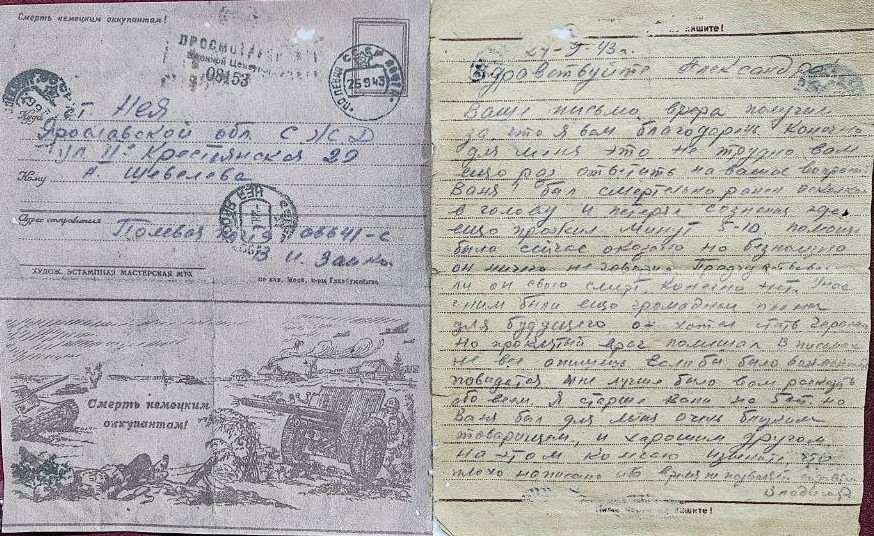 Смерть немецким оккупантам!
ПРОСМОТРЕНО
Военной Цензурой
08153
25 9 43
Куда ст Нея
Ярославской обл. С Ж Д
ул. Крестьянская 29
Кому А. Шевелева
Адрес отправителя
Полевая почта 06641-с
В. И. Заики
ХУДОЖ. ЭСТАМПНАЯ МАСТЕРСКАЯ МТХ
Смерть немецким
оккупантам!
пишите!
43 г.
Здравствуйте Александра!
Ваше письмо вчера получил
за что я вам благодарен. Конечно
для меня это не трудно вам
ещо раз ответить на ваше вопрос
Ваня был смертельно ранен осколком
в голову и потерял сознания где
ещо прожил минут 5-10, помощь
была сейчас оказано но безполезно
он ничего не говорил. Предчувствовал
ли он свою смерть, конечно нет. У нас
с ним были ещо громадные планы
для будущего он хотел стать героем
но проклятый враг помешал. В письмах
не все опишешь если бы было возможно
повидется мне лучше было вам рассказать
обо всем. Я старше Вани на 5 лет, но
Ваня был для меня очень близким
товарищем, и хорошим другом
на этом кончаю извините что
плохо написано ибо время не позволяет
Владимир
пишите!